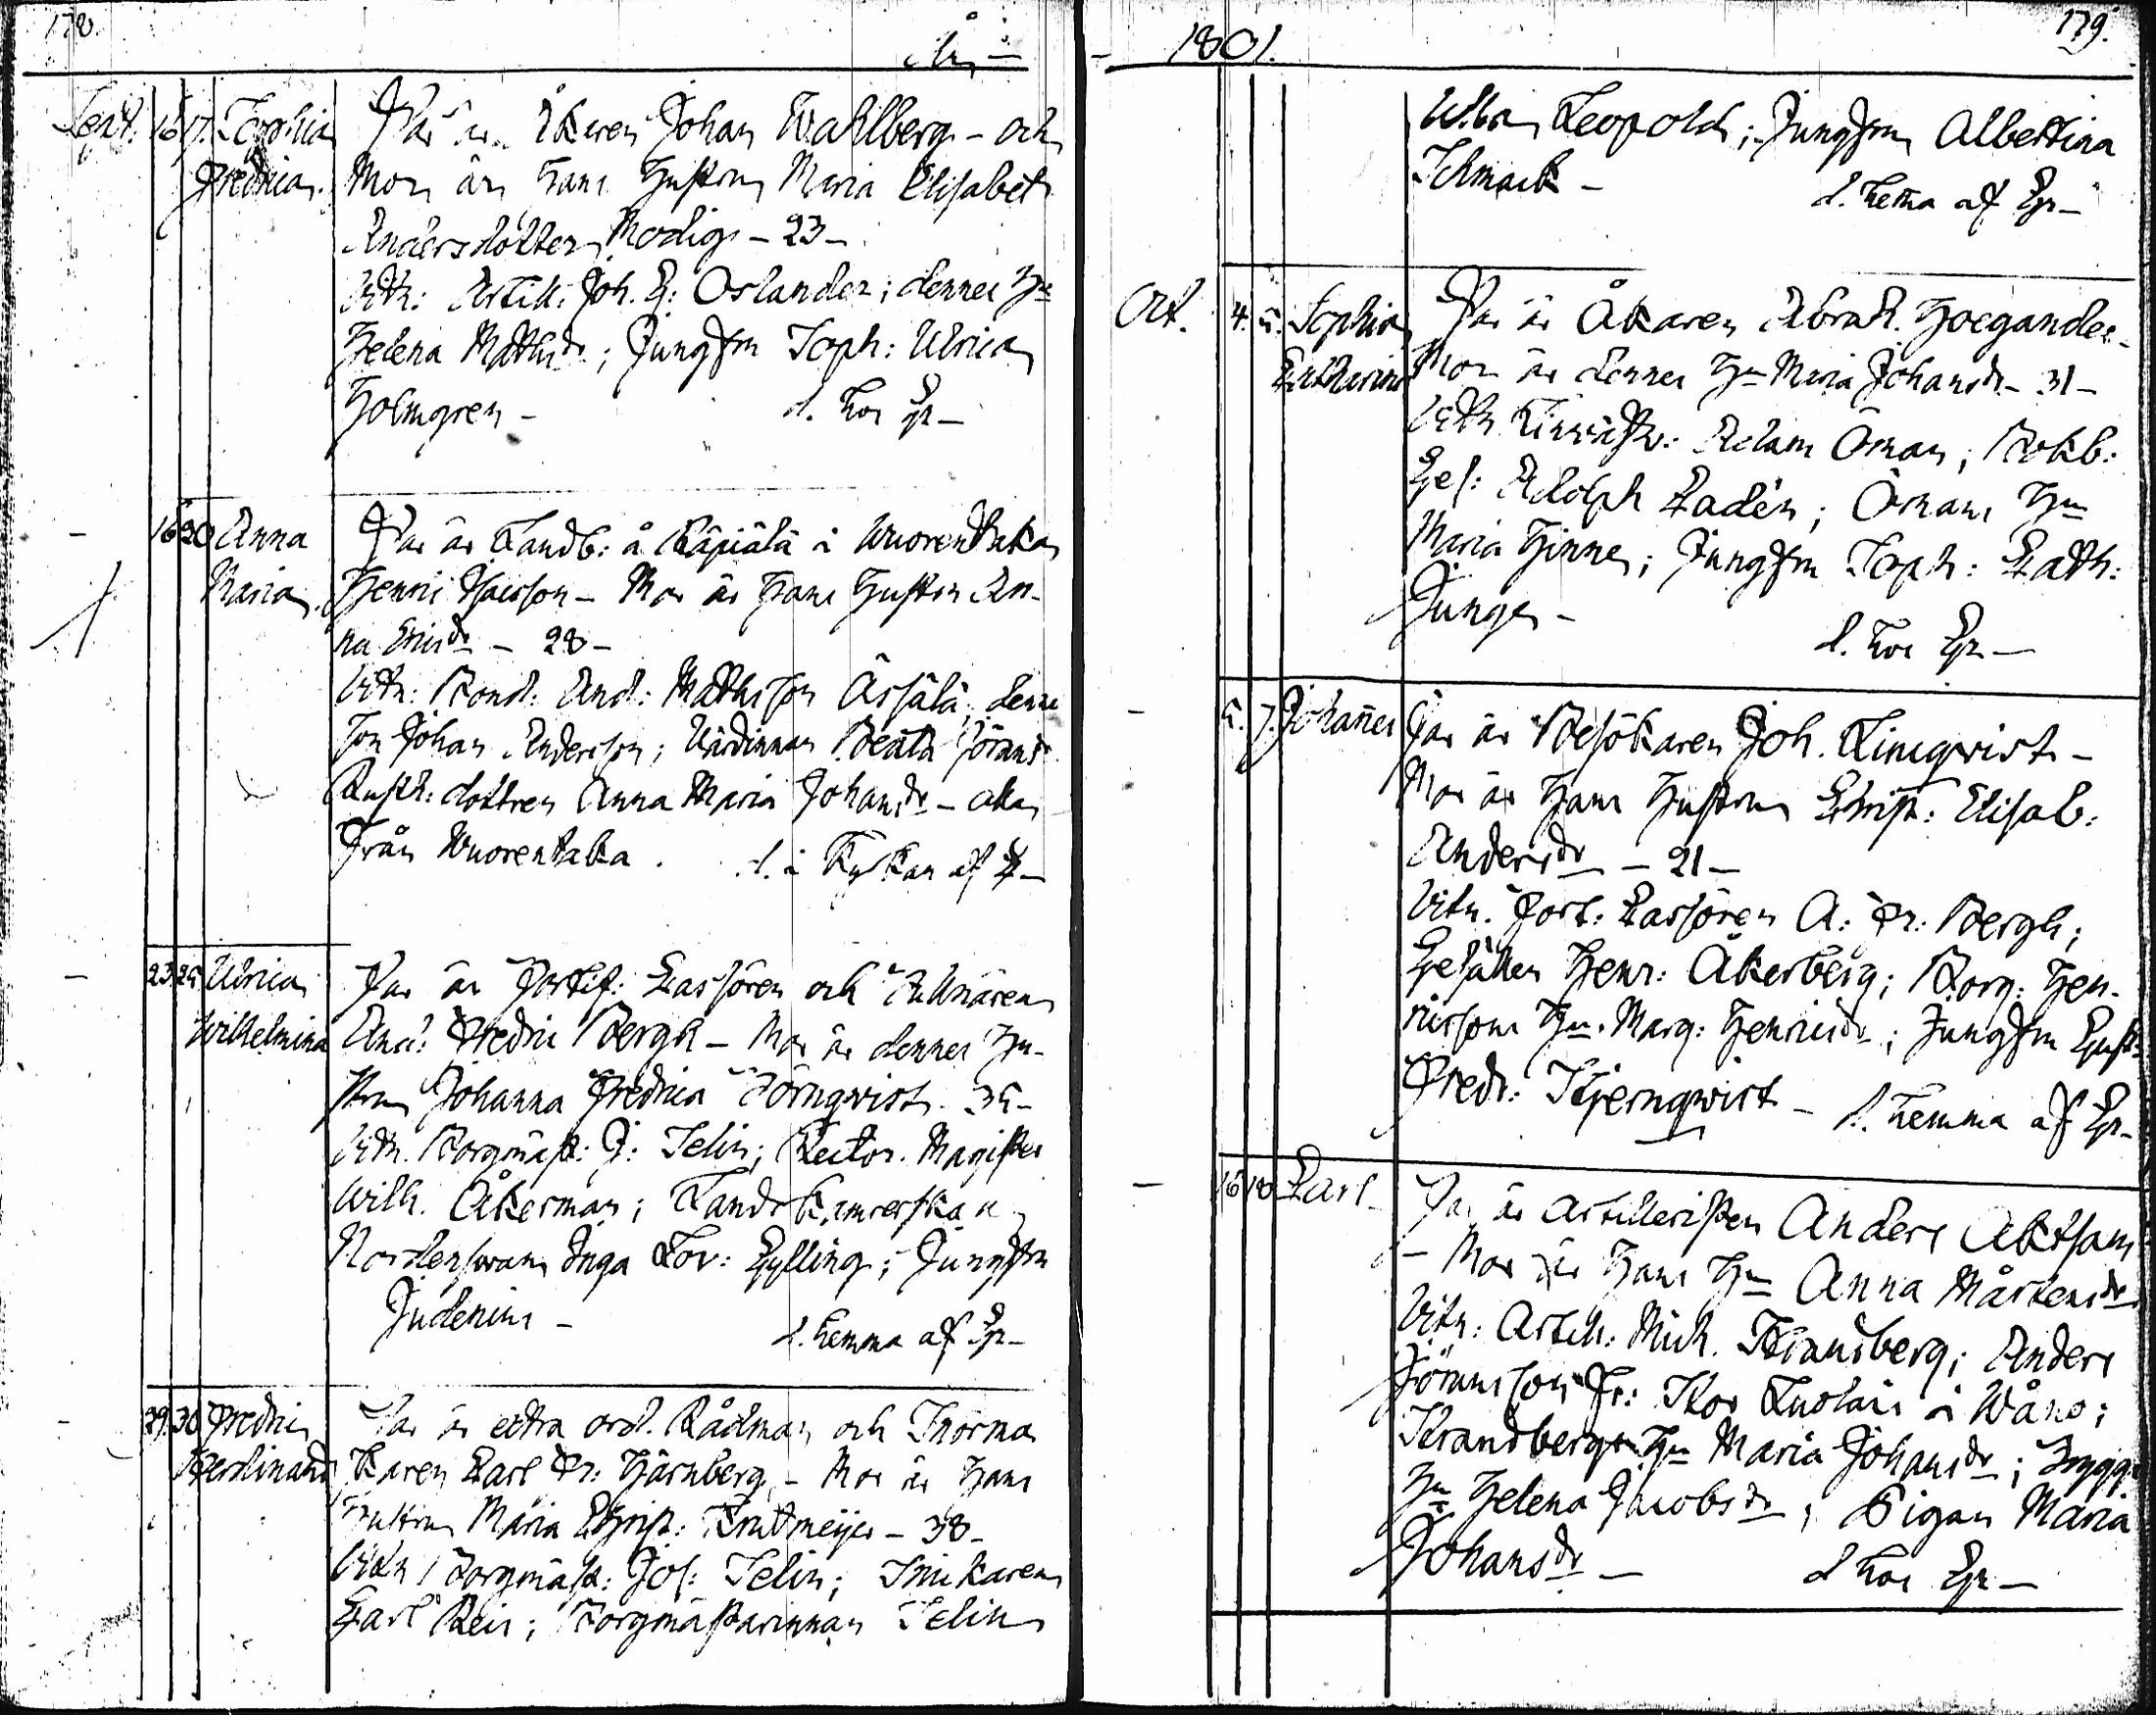 178.
År —
Sept. 16 17. Sophia Fredrica. Far är Åkaren Johan Wahlberg – och
Mor är hans Hustru Maria Elisabet
Andersdotter Modig – 23 –
Vitn: Artill: Joh. G: Oslander; dennes Hu
Helena Mathsdr; Jungfru Soph: Ulrica
Holmgren – d. hos Gr –
– 16 20 Anna Maria. Far är Landb: å Käpiälä i Wuorentaka
Henric Isacsson – Mor är hans Hustru An-
na Ericsdr – 28 –
Vitn: Bond: And: Mathsson Ässälä; denns
Son Johan Andersson; Värdinnan Beata Göransdr
Rusth: dottren Anna Maria Johansdr – alla
från Wuorentaka. d. i Kyrkan af
– 23 25 Ulrica Wilhelmina Far är Fortif: Cassören och
And: Fredric Bergh – Mor är dennes Hu-
stru Johanna Fredrica Törnqvist. 35 –
Vitn. Borgmäst: J: Selin; Rector. Magister
Wilh. Åkerman; Landskamrerskan
Nordenswan Inga Lov: Gylling; Jungfru
Judenius – d. hemma af Gr –
– 29. 30 Fredric Ferdinand Far är extra ord. Rådman och Snörma
karen Carl Fr: Hjärnberg – Mor är hans
Hustru Maria Christ: Brutmeijer – 38 –
Vitn: Borgmäst: Jos: Selin; Snickaren
Carl Reis; Borgmästarinnan Selin
– 1801. 179.
Leopold; Jungfru Albertina
Schmack – d. hem̄a af Gr –
Oct. 4. 5. Sophia Catharina Far är Åkaren Abrah. Hoegander –
Mor är dennes Hu Maria Johansdr – 31 –
Vitn Adam Öman; Bokb:
Ges: Adolph Ladén; Ömans Hu
Maria Hinne; Jungfru Soph: Cath:
Junge – d. hos Gr –
– 5. 7. Johan̄es Far är Besökaren Joh. Limqvist –
Mor är hans Hustru Christ: Elisab:
Andersdr – 21 –
Vitn. Fort: Cassören A: Fr: Bergh;
Gesällen Henr: Åkerberg; Borg: Hen-
ricssons Hu. Marg: Henricsdr; Jungfru Gust:
Fredr: Stjernqwist – d. hemma af Gr –
– 16 18 Carl – Far är Artilleristen Anders Aktsam
– Mor är hans Hu Anna Mårtensdr
Vitn: Artill: Mich. Strandberg; Anders
Göransson fr: Stor Luolais i Wåno;
Strandbergs Hu Maria Johansdr;
Hu Helena Jacobsdr; Pigan Maria
Johansdr – d hos Gr –